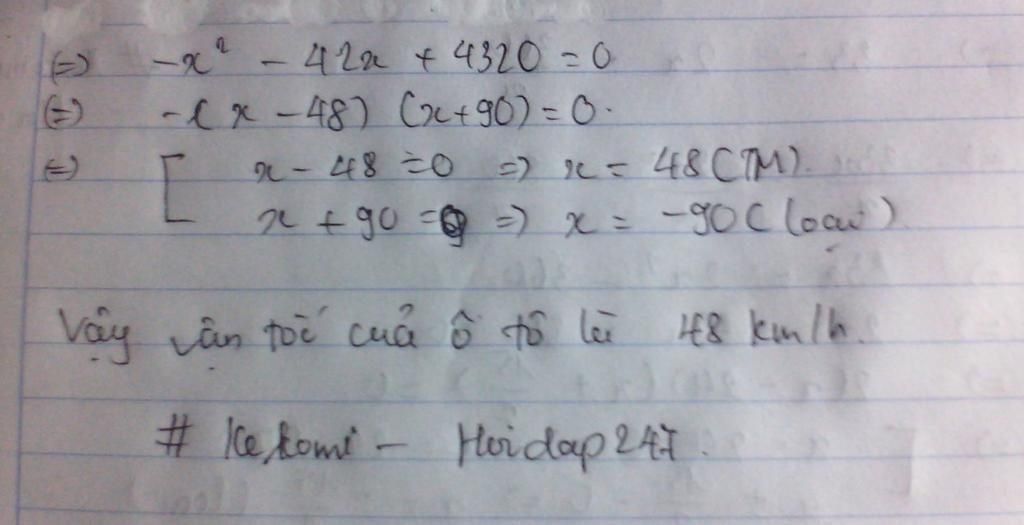 (=) -x² - 42x + 4320 = 0
(=) -(x - 48) (x+90) = 0.
(=) [ x - 48 = 0 => x = 48 (TM).
x + 90 = 0 => x = -90 (loại)
Vậy vận tốc của ô tô là 48 km/h.
# Kekomi - Hoidap247.